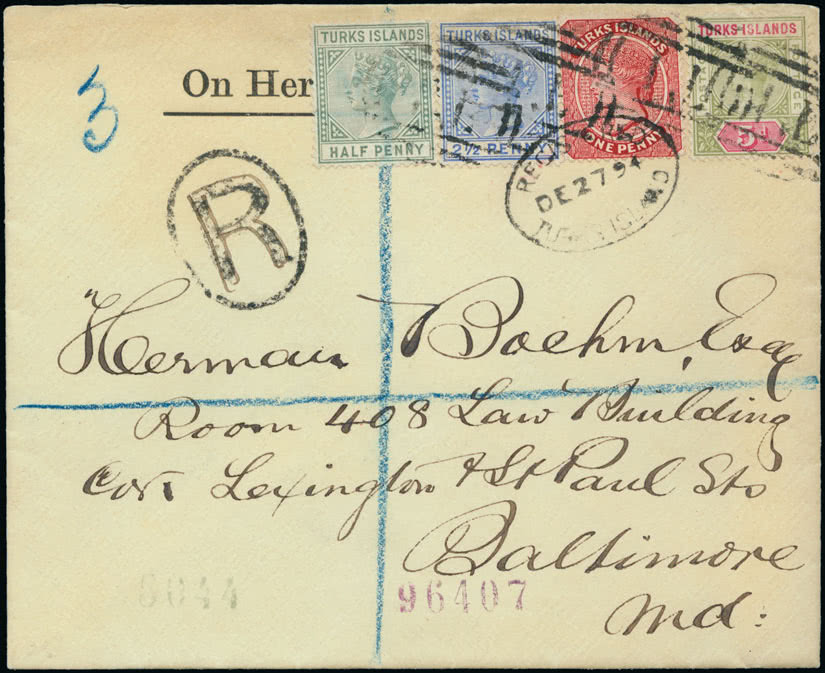 3
On Her
TURKS ISLANDS
HALF PENNY
TURKS ISLANDS
2½ PENNY
TURKS ISLANDS
ONE PENNY
TURKS ISLANDS
5d
DE 27 94
TURKS ISLAND
R
Herman Boehm, Esq
Room 408 Law Building
Cor Lexington & St Paul Sts
Baltimore
Md:
96407